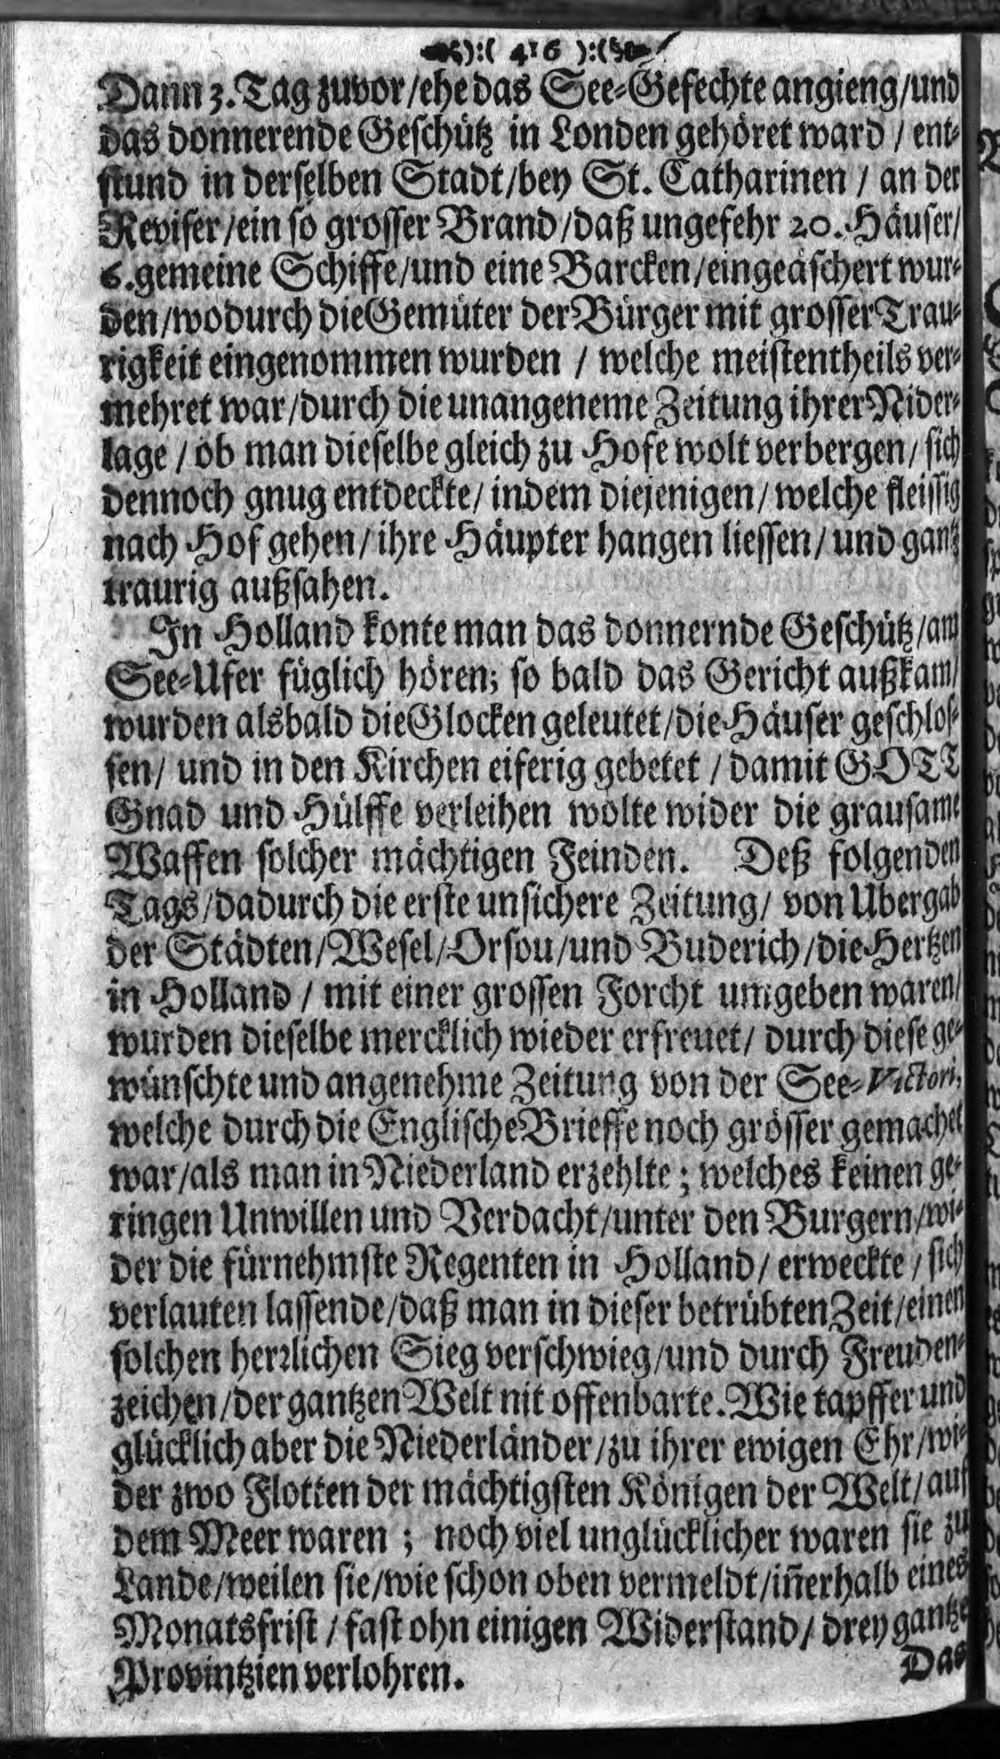 ):( 416 ):(
Dann 3. Tag zuvor/ehe das See-Gefechte angieng/und
das donnerende Geschütz in Londen gehöret ward / ent-
stund in derselben Stadt/bey St. Catharinen / an der
Revifer/ein so grosser Brand/daß ungefehr 20. Häuser/
6. gemeine Schiffe/und eine Barcken/eingeäschert wur-
den/wodurch die Gemüter der Bürger mit grosser Trau-
rigkeit eingenommen wurden / welche meistentheils ver-
mehret war/durch die unangeneme Zeitung ihrer Nider-
lage / ob man dieselbe gleich zu Hofe wolt verbergen/ sich
dennoch gnug entdeckte/ indem diejenigen/ welche fleissig
nach Hof gehen/ ihre Häupter hangen liessen/ und gantz
traurig außsahen.
In Holland konte man das donnernde Geschütz/am
See-Ufer füglich hören; so bald das Gericht außkam/
wurden alsbald die Glocken geleutet/die Häuser geschlos-
sen/ und in den Kirchen eiferig gebetet / damit GOTT
Gnad und Hülffe verleihen wolte wider die grausame
Waffen solcher mächtigen Feinden. Deß folgenden
Tags/dadurch die erste unsichere Zeitung/ von Ubergab
der Städten/Wesel/Orsou/und Buderich/die Hertzen
in Holland / mit einer grossen Forcht umgeben waren/
wurden dieselbe mercklich wieder erfreuet/ durch diese ge-
wünschte und angenehme Zeitung von der See-Victori,
welche durch die Englische Brieffe noch grösser gemachet
war/als man in Niederland erzehlte ; welches keinen ge-
ringen Unwillen und Verdacht/unter den Burgern/wi-
der die fürnehmste Regenten in Holland/ erweckte / sich
verlauten lassende/daß man in dieser betrübten Zeit/einen
solchen herrlichen Sieg verschwieg/und durch Freuden-
zeichen/der gantzen Welt nit offenbarte. Wie tapffer und
glücklich aber die Niederländer/zu ihrer ewigen Ehr/wi-
der zwo Flotten der mächtigsten Königen der Welt/ auf
dem Meer waren ; noch viel unglücklicher waren sie zu
Lande/weilen sie/wie schon oben vermeldt/iñerhalb eines
Monatsfrist / fast ohn einigen Widerstand/ drey gantze
Provintzien verlohren.
Das